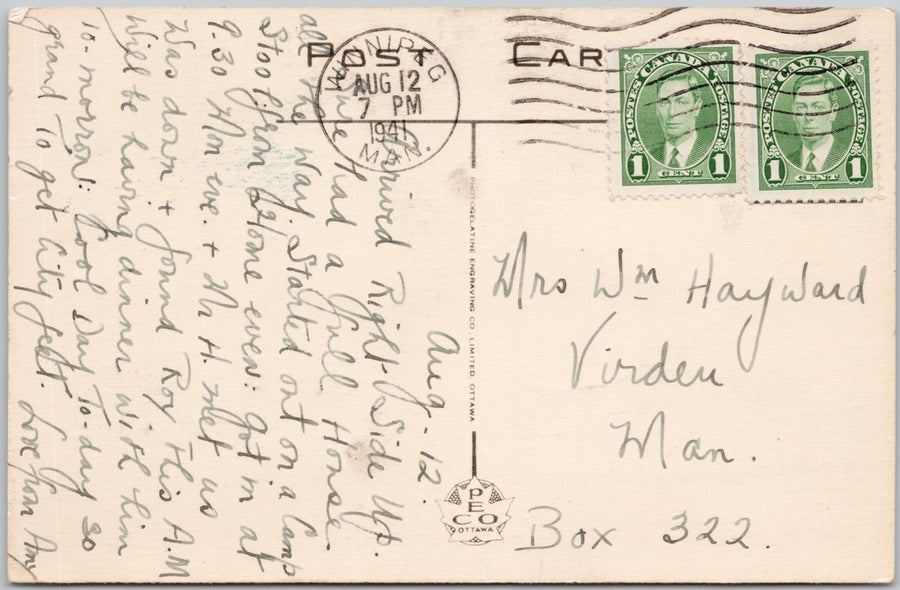 POST CARD
WINNIPEG
AUG 12
7 PM
1941
MAN.
POSTES CANADA POSTAGE
1 CENT 1
POSTES CANADA POSTAGE
1 CENT 1
Aug - 12.
Arrived Right Side Up.
have had a full House
all the Way. Started out on a Camp
Stool from Home even: Got in at
9.30 Mon eve. + Mr H. met us
Was down + found Roy this A.M
Will be having dinner with him
to-morrow: Cool Day To-day so
grand To get City feet. Love from Amy
PHOTOGELATINE ENGRAVING CO., LIMITED, OTTAWA
PECO
OTTAWA
Mrs Wm Hayward
Virden
Man.
Box 322.